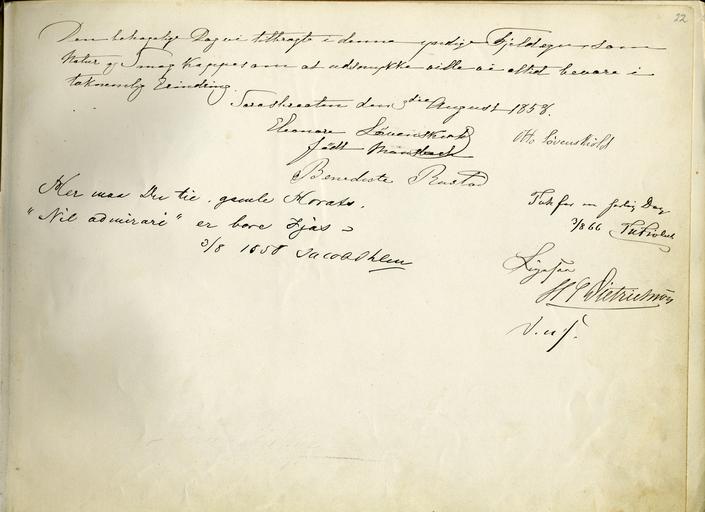 22
Den behagelige Dag vi tilbragte i denne yndige Fjeldegn, som
Natur og Smag kappes om at udsmykke ville vi altid bevare i
taknemlig Erindring.
den 3die August 1858.
Eleonore Løvenskiold
født Mansbach
Otto Løvenskiold
Benedicte Rustad
Her maa Du tie, gamle Horats.
"Nil admirari" er bare Fjas
3/8 1858 Jacob Ihlen
Tak for en Dag
3/8 66
Ligesaa
Dietrichson